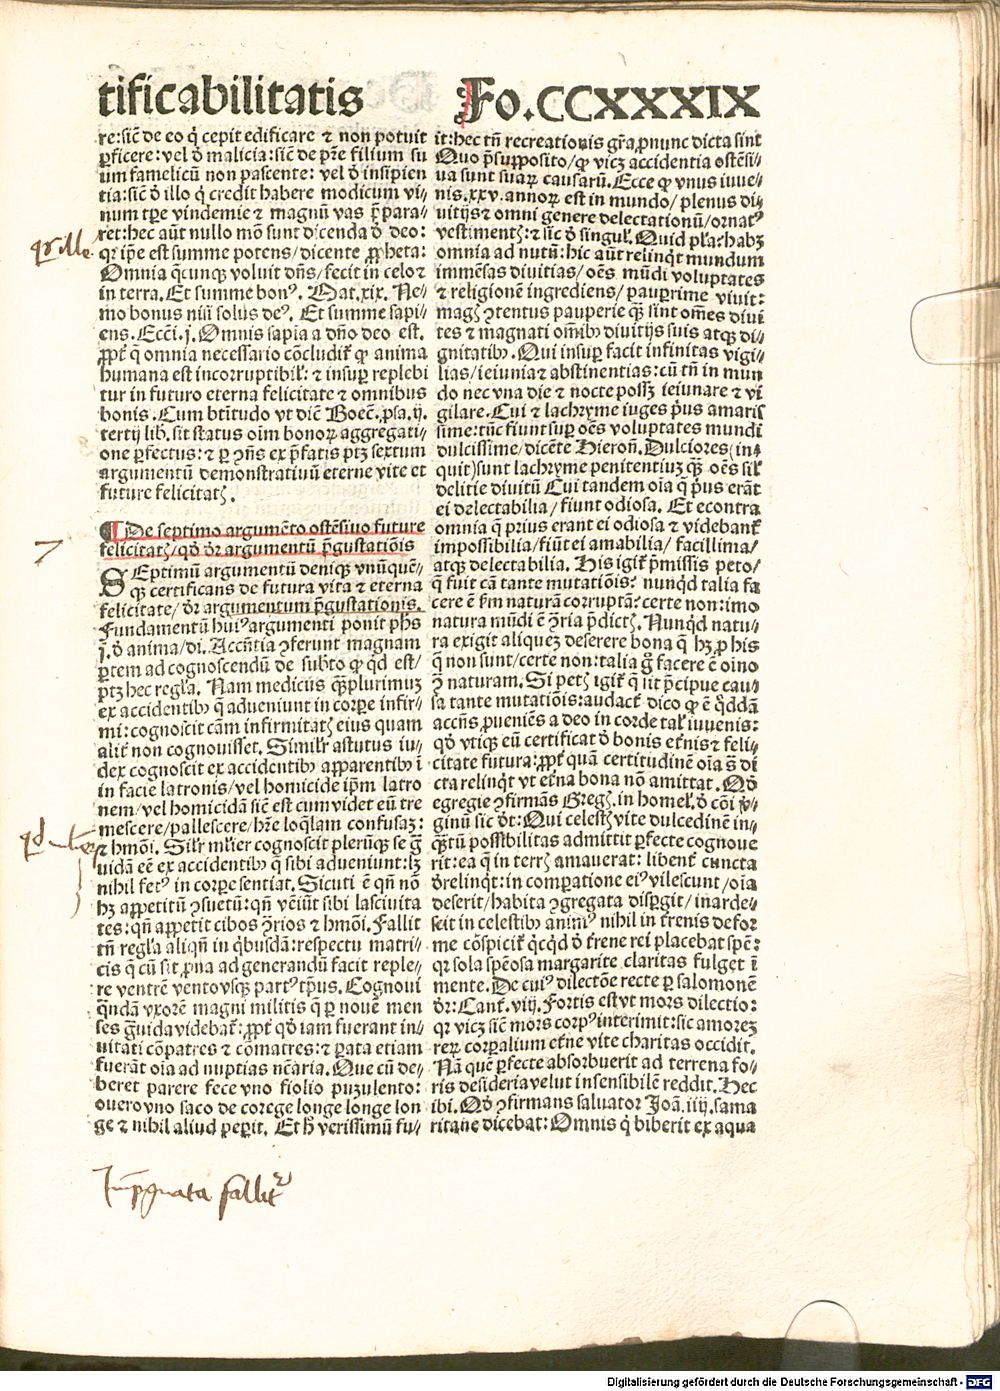 tificabilitatis
Fo.CCXXXIX
re:sic̄ de eo q̇ cepit edificare ⁊ non potuit
ꝑficere: vel ð malicia: sic̄ de pr̄e filium su
um famelicū non pascente: vel ð insipien
tia: sic̄ ð illo q̇ credit habere modicum vi⸗
num tꝑe vindemie ⁊ magnū vas p̄para⸗
ret: hec aūt nullo mō sunt dicenda ð deo:
qꝛ ip̄e est summe potens/ dicente ꝓpheta:
Omnia q̄cunqꝫ voluit dn̄s/ fecit in celo ⁊
in terra. Et summe bonꝰ. Mat. xix. Ne⸗
mo bonus nisi solus deꝰ. Et summe sapi
ens. Ecc̄i. j. Omnis sapia a dn̄o deo est.
ꝓpt̄ q̄ omnia necessario cōcludit̄ ꝙ anima
humana est incorruptibil̄: ⁊ insuꝑ replebi
tur in futuro eterna felicitate ⁊ omnibus
bonis. Cum bt̄itudo vt dic̄ Boec̄. ꝓsa. ij.
tertij lib. sit status oīm bonoꝝ aggregati⸗
one perfectus: ⁊ ꝑ ꝯn̄s ex p̄fatis ptꝫ sextum
argumentū demonstratiuū eterne vite et
future felicitatꝭ.
¶ De septimo argumēto ostēsiuo future
felicitatꝭ/ qð dr̄ argumentū p̄gustatiōis
SEptimū argumentū deniqꝫ vnūquē⸗
qꝫ certificans de futura vita ⁊ eterna
felicitate/ dr̄ argumentum p̄gustationis.
Fundamentū huiꝰ argumenti ponit ph̄s
j. ð anima/ di. Accn̄tia ꝯferunt magnam
ꝑtem ad cognoscendū de subto ꝙ qd est/
ptꝫ hec regl̄a. Nam medicus qꝫplurimuꝫ
ex accidentibꝰ q̄ adueniunt in corꝑe infir⸗
mi: cognoscit cām infirmitatꝭ eius quam
alit̄ non cognouisset. Simil̄r astutus iu⸗
dex cognoscit ex accidentibꝰ apparentibꝰ ī
in facie latronis/ vel homicide ip̄m latro
nem/ vel homicidā sic̄ est cum videt eū tre
mescere/ pallescere/ hr̄e loq̄lam confusaꝫ:
⁊ hmōi. Sil̄r ml̄ier cognoscit pleruꝫqꝫ se ḡ
uidā eē ex accidentibꝰ q̄ sibi adueniunt: lꝫ
nihil fetꝰ in corꝑe sentiat. Sicuti ē qn̄ nō
hꝫ appetitū ꝯsuetū: qn̄ veniūt sibi lasciuita
tes: qn̄ appetit cibos ꝯrios ⁊ hmōi. Fallit
tn̄ regl̄a aliqn̄ in q̇busdā: respectu matri⸗
cis q̄ cū sit ꝓna ad generandū facit reple⸗
re ventrē ventovsqꝫ partꝰ tp̄us. Cognoui
q̄ndā vxorē magni militis q̄ ꝑ nouē men
ses ḡuida videbat̄: ꝓpt̄ qð iam fuerant in⸗
uitati cōpatres ⁊ cōmatres: ⁊ ꝑata etiam
fuerāt oīa ad nuptias nc̄aria. Que cū de⸗
beret parere fece vno fiolio puzulento:
ouero vno saco de corege longe longe lon
ge ⁊ nihil aliud peꝑit. Et h̄ verissimū fu⸗
it: hec tn̄ recreationis gr̄a ꝓnunc dicta sint
Quo p̄supposito/ ꝙ vicꝫ accidentia ostēsi⸗
ua sunt suaꝝ causarū. Ecce ꝙ vnus iuue⸗
nis. xxv. annoꝝ est in mundo/ plenus di⸗
uitijs ⁊ omni genere delectationū/ ornatꝰ
vestimentꝭ: ⁊ sic̄ ð singul̄. Quid pl̄a: habꝫ
omnia ad nutū: hic aūt relinqt mundum
immēsas diuitias/ oēs mūdi voluptates
⁊ religionē ingrediens/ pauꝑrime viuit:
magꝭ ꝯtentus pauperie qꝫ sint om̄es diui
tes ⁊ magnati om̄ibꝰ diuitijs suis atqꝫ di⸗
gnitatibꝰ. Qui insuꝑ facit infinitas vigi⸗
lias/ ieiunia ⁊ abstinentias: cū tn̄ in mun
do nec vna die ⁊ nocte possꝫ ieiunare ⁊ vi
gilare. Cui ⁊ lachryme iuges p̄us amaris
sime: tūc fiunt suꝑ oēs voluptates mundi
dulcissime/ dicēte Hieron̄. Dulciores (in⸗
quit) sunt lachryme penitentiuꝫ qꝫ oēs sil̄
delitie diuitū Cui tandem oīa q̄ p̄us erāt
ei delectabilia/ fiunt odiosa. Et econtra
omnia q̄ prius erant ei odiosa ⁊ videbant̄
impossibilia/ fiūt ei amabilia/ facillima/
atqꝫ delectabilia. His igit̄ p̄missis peto/
q̄ fuit cā tante mutatiōis? nunqd talia fa
cere ē ẜm naturā corruptā? certe non: imo
natura mūdi ē ꝯria p̄dictꝭ. Nunqd natu⸗
ra exigit aliquez deserere bona q̄ hꝫ ꝓ his
q̄ non sunt/ certe non: talia g̊ facere ē oīno
ꝯ̄ naturam. Si petꝭ igit̄ q̄ sit p̄cipue cau⸗
sa tante mutatiōis: audact̄ dico ꝙ ē q̄ddā
accn̄s ꝓueniēs a deo in corde tal̄ iuuenis:
qð vtiqꝫ eū certificat ð bonis et̄nis ⁊ feli⸗
citate futura: ꝓpt̄ quā certitudinē oīa s̄ di
cta relinqt vt et̄na bona nō amittat. Qð
egregie ꝯfirmās Greḡ. in homel̄. ð cōi v̇⸗
ginū sic dt: Qui celestꝭ vite dulcedinē in⸗
qꝫtū possibilitas admittit ꝑfecte cognoue
rit: ea q̄ in terrꝭ amauerat: libent̄ cuncta
ðrelinqt: in comꝑatione eiꝰ vilescunt/ oīa
deserit/ habita ꝯgregata disꝑgit/ inarde⸗
scit in celestibꝰ animꝰ nihil in t̄renis defor
me cōspicit̄ qcqd ð t̄rene rei placebat spē:
qꝛ sola spēosa margarite claritas fulget ī
mente. De cuiꝰ dilectōe recte ꝑ salomonē
dr̄: Cant̄. viij. Fortis est vt mors dilectio:
qꝛ vicꝫ sic̄ mors corpꝰ interimit: sic amoreꝫ
reꝝ corꝑalium et̄ne vite charitas occidit.
Nā quē ꝑfecte absorbuerit ad terrena fo⸗
ris desideria velut insensibilē reddit. Hec
ibi. Qð ꝯfirmans saluator Joā. iiij. sama
ritane dicebat: Omnis q̇ biberit ex aqua
7
Imp̄gnata fallit̄
Digitalisierung gefördert durch die Deutsche Forschungsgemeinschaft - DFG